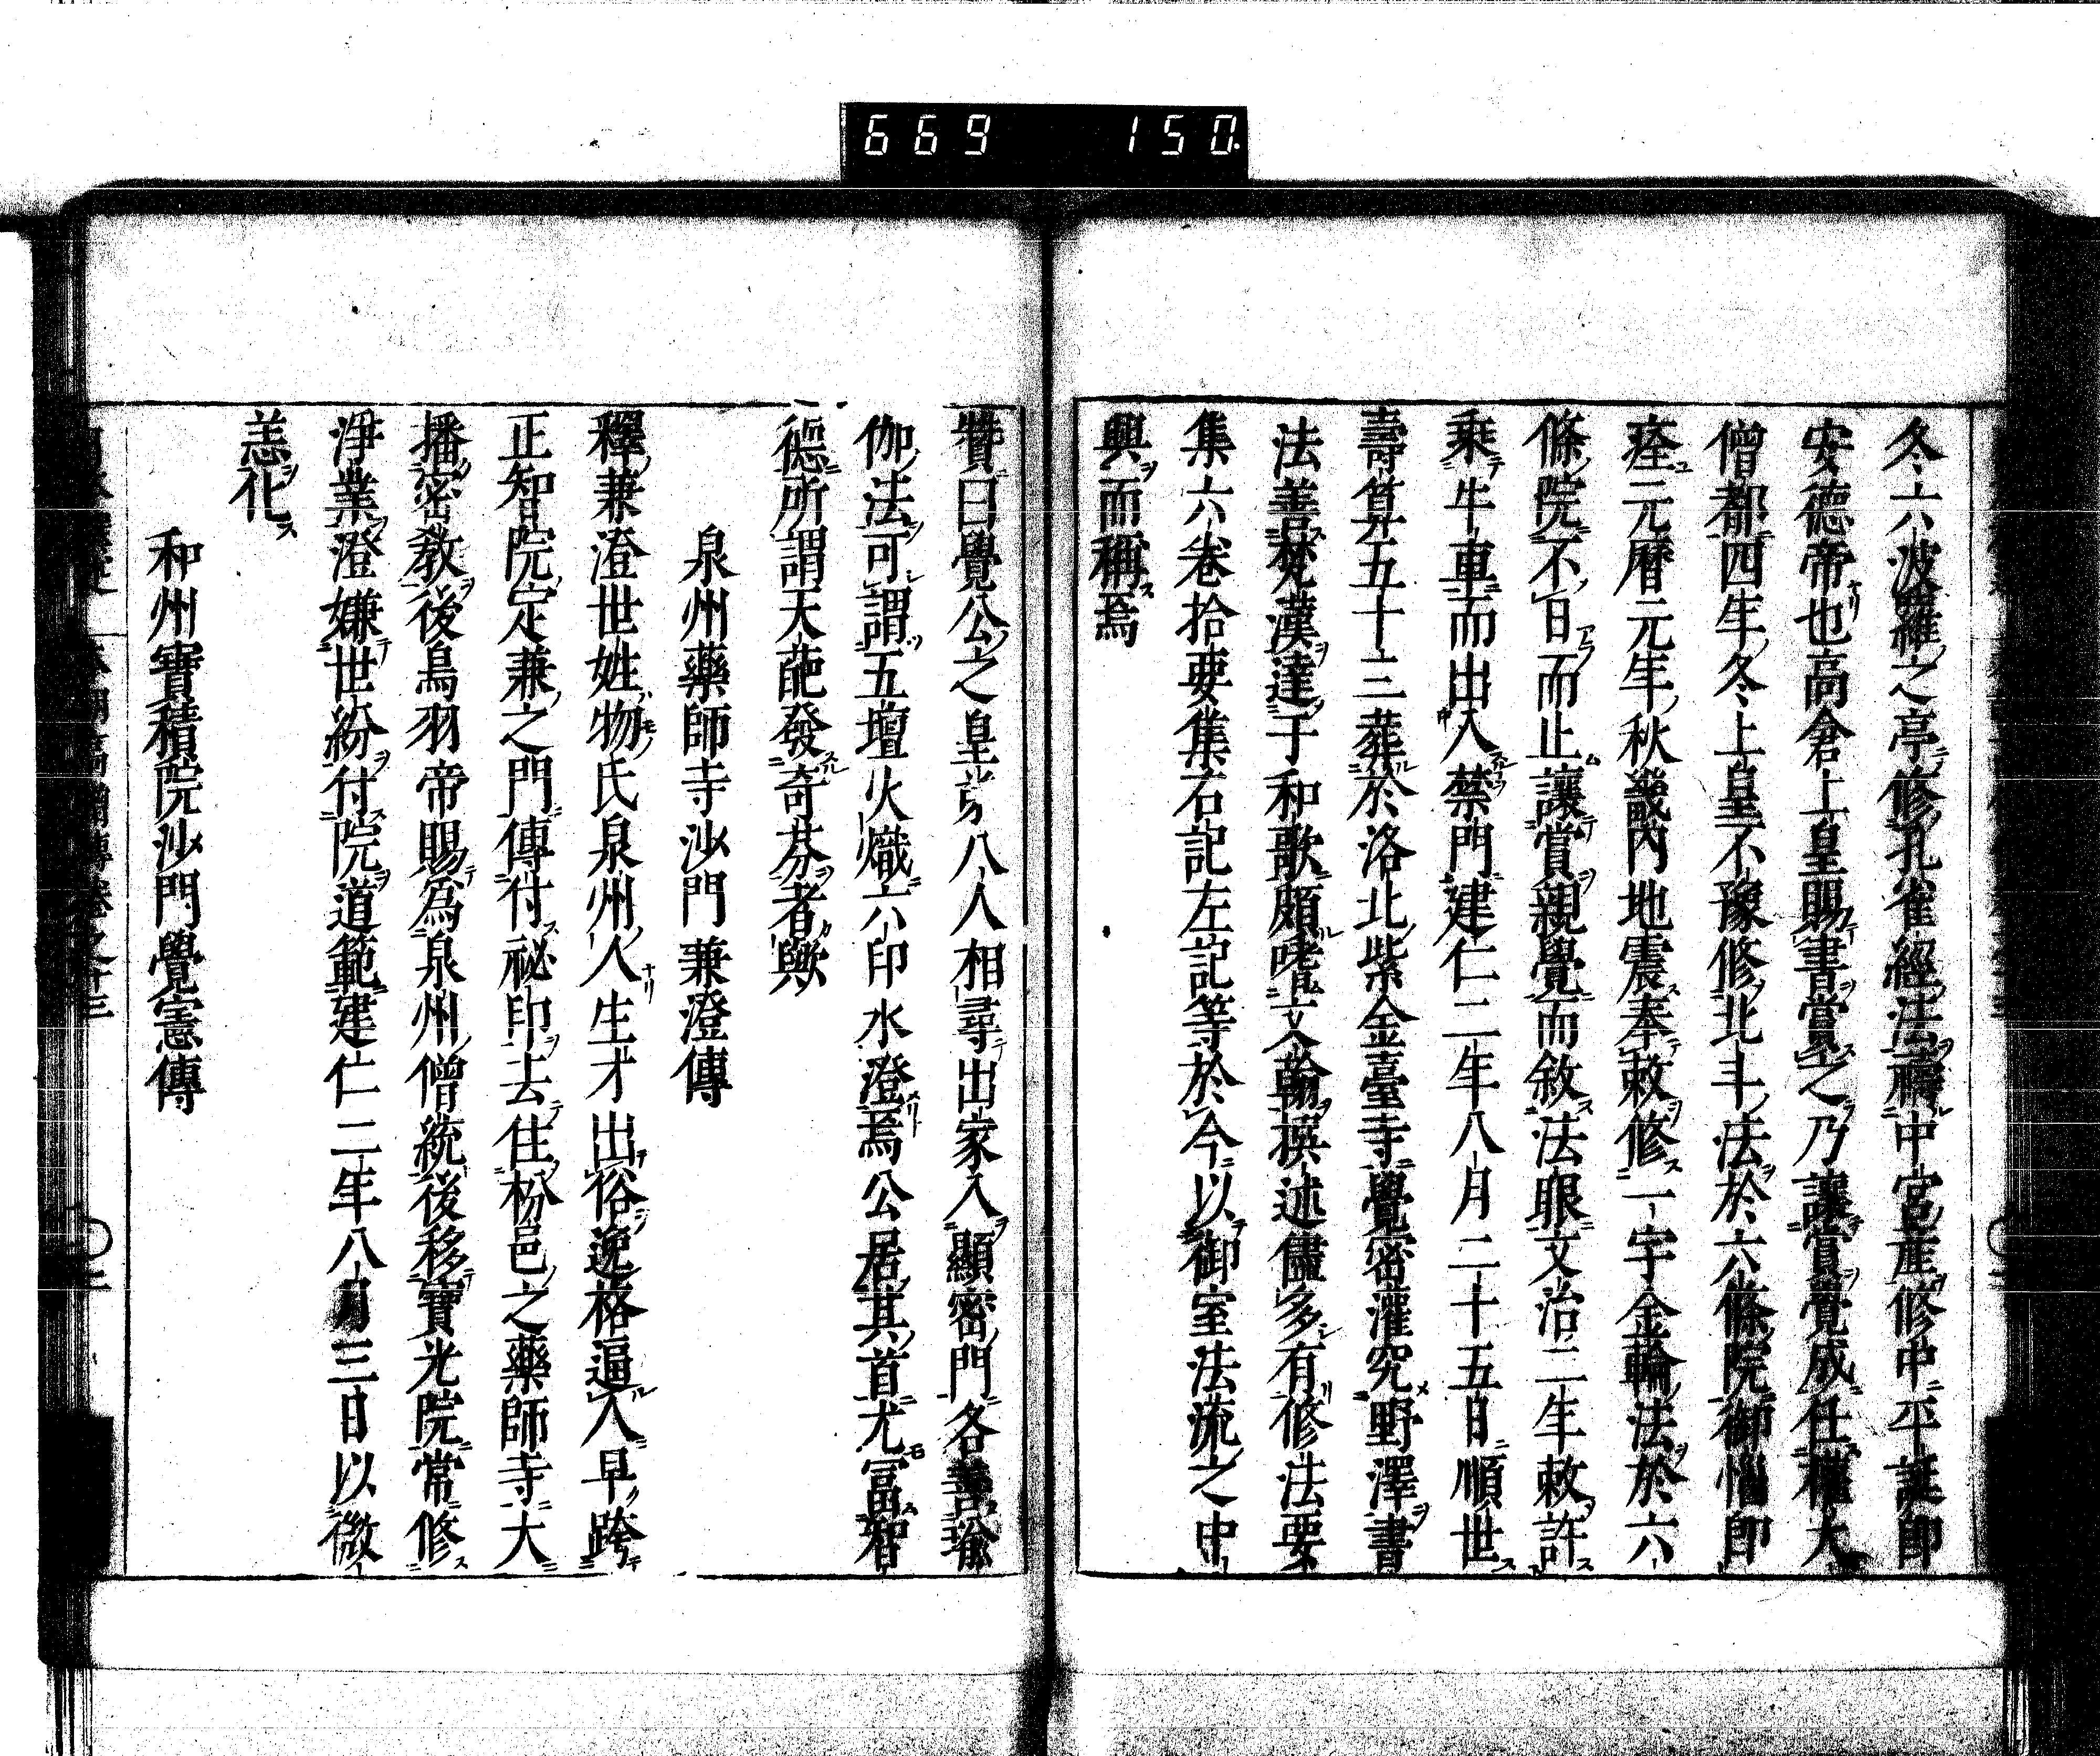 669 150
冬六波羅之亭修孔雀經法禱中宮産修中平誕即
安德帝也高倉上皇賜書賞之乃讓賞覺成任權大
僧都四年冬上皇不豫修北斗法於六條院御惱即
痊元曆元年秋畿內地震奉敕修一字金輪法於六
條院不日而止讓賞親覺而敘法眼文治二年敕許
乘牛車而出入禁門建仁二年八月二十五日順世
壽算五十三葬於洛北紫金臺寺覺密灌究野澤書
法善梵漢達于和歌頗嗜文翰撰述儘多有修法要
集六卷拾要集右記左記等於今以御室法流之中
興而稱焉
贊曰覺公之皇胤八人相尋出家入顯密門各善瑜
伽法可謂五壇火熾六印水澄焉公居其首尤富智
德所謂天葩發奇芬者歟
泉州藥師寺沙門兼澄傳
釋兼澄世姓物氏泉州人生才出俗逸格逼人早跨
正智院定兼之門傳付祕印去住枌邑之藥師寺大
播密教後鳥羽帝賜爲泉州僧統後移寶光院常修
淨業澄嫌世紛付院道範建仁二年八月三日以微
恙化
和州寶積院沙門覺憲傳